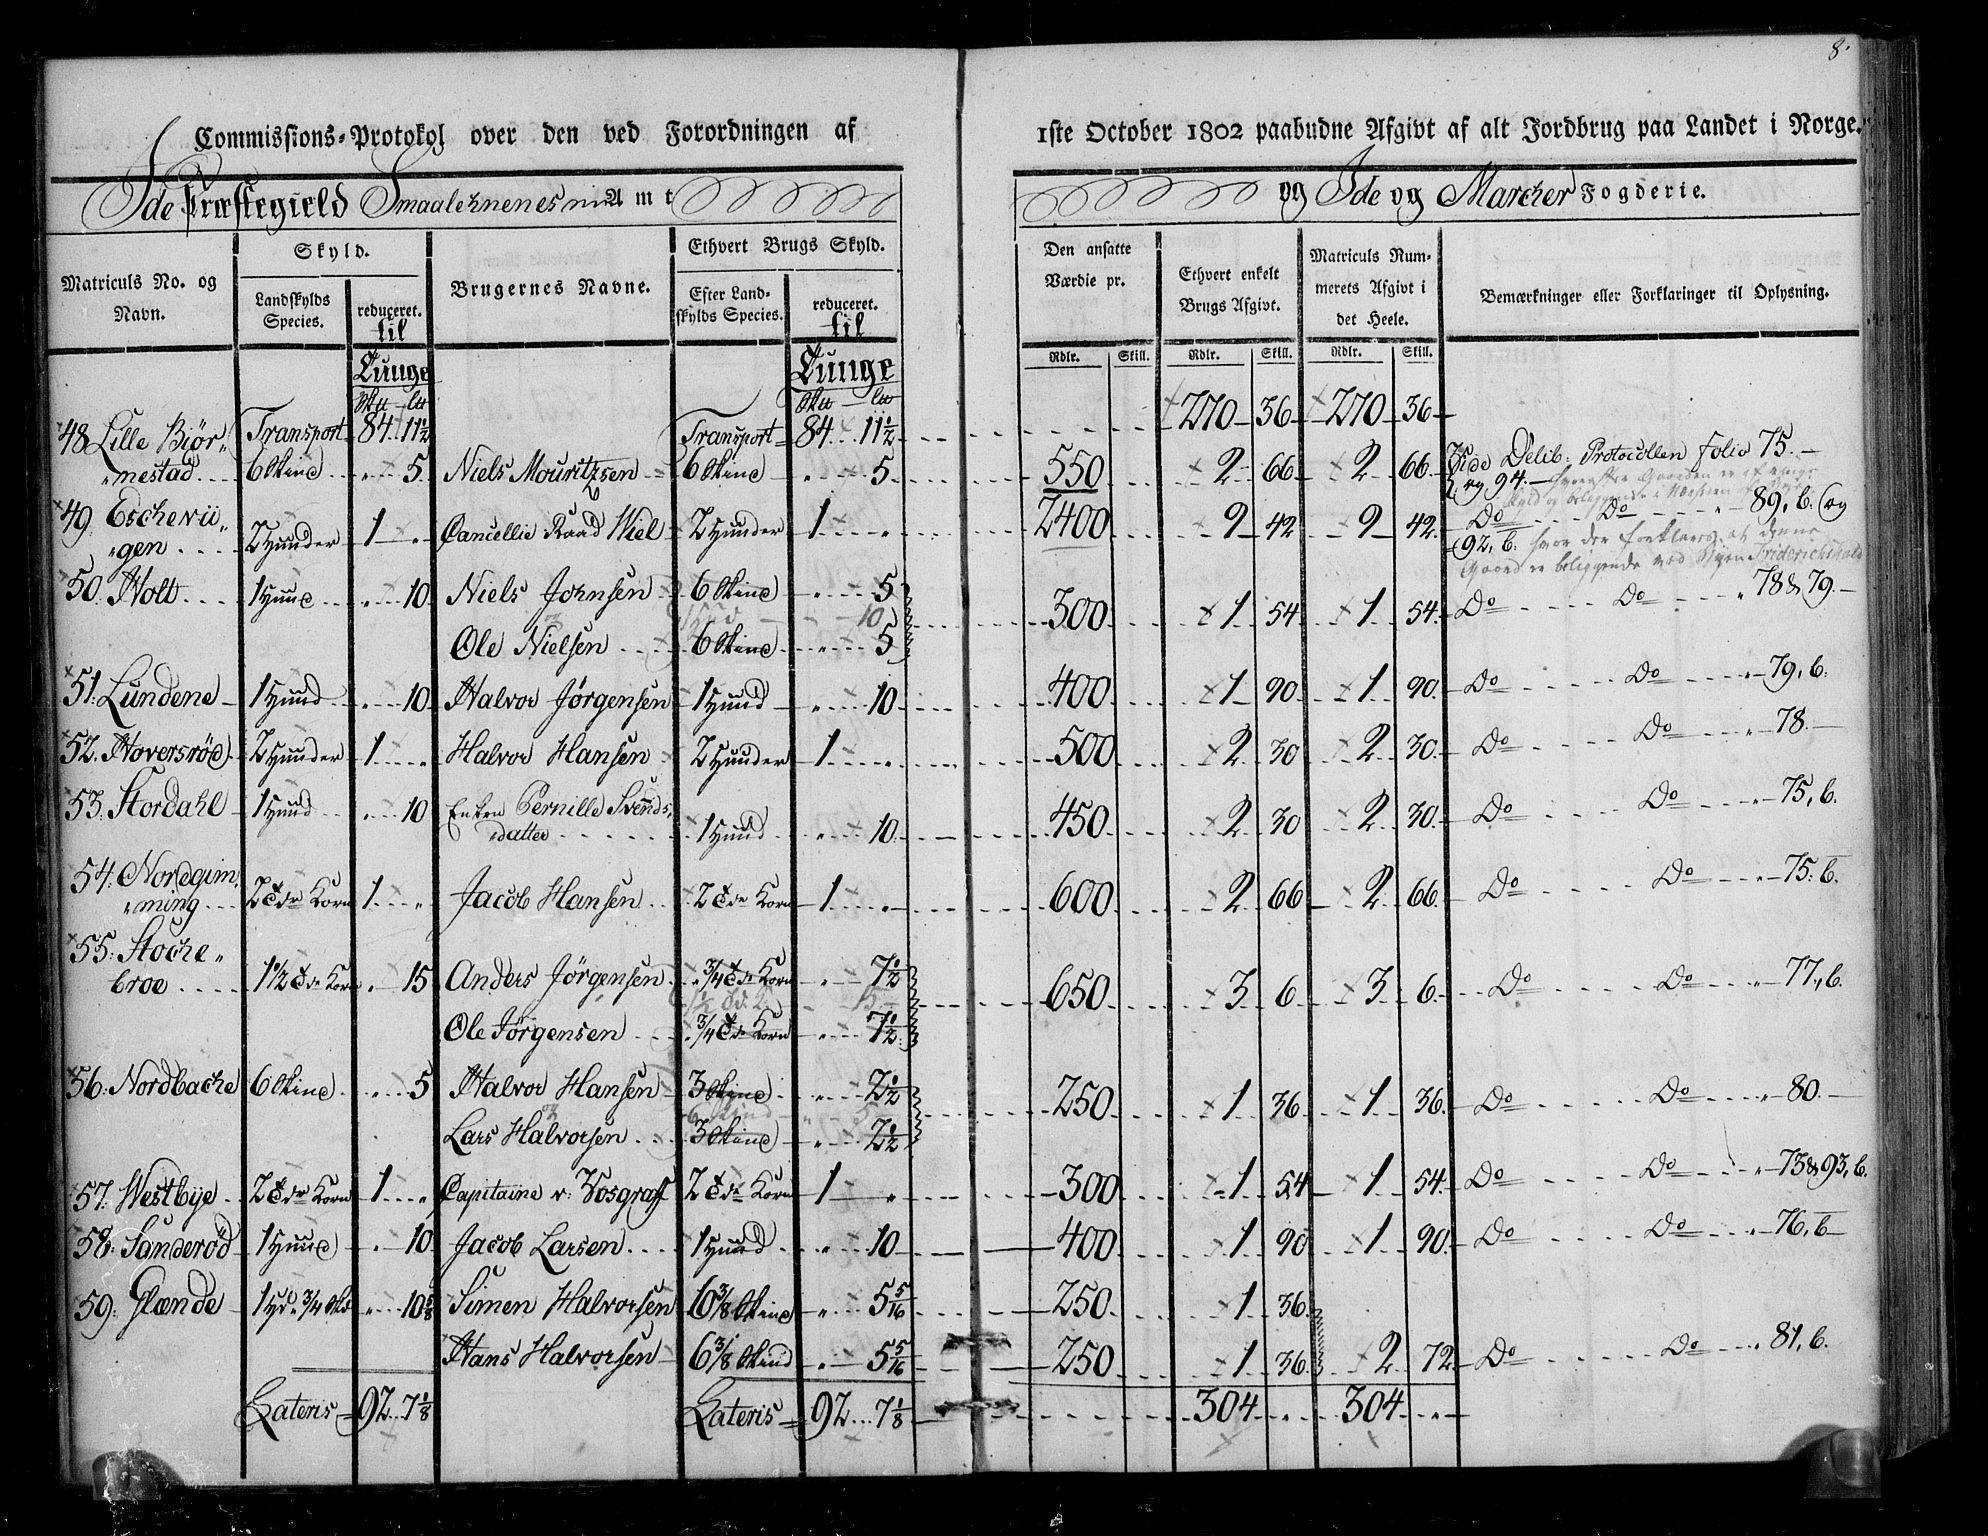 8.
Commissions-Protokol over den ved Forordningen af 1ste October 1802 paabudne Afgivt af alt Jordbrug paa Landet i Norge.
Ide Præstegield Smaalehnenes Amt og Ide og Marcher Fogderie.
Matriculs No. og Navn. | Skyld. | Brugernes Navne. | Ethvert Brugs Skyld. | Den ansatte Værdie pr. | Ethvert enkelt Brugs Afgivt. | Matriculs Nummerets Afgivt i det Heele. | Bemærkninger eller Forklaringer til Oplysning.
Landskylds Species. | reduceret. til Tunge | Efter Landskylds Species. | reduceret. til Tunge
Rdlr. | Skill. | Rdlr. | Skill. | Rdlr. | Skill.
Transport 84 11½ | Transport 84 11½ | 270 36 | 270 36
48 Lille Biør„
„nestad | 6 Skind | „ 5 | Niels Mouritzsen | 6 Skind | „ 5 | 550 | 2 66 | 2 66 | Vide Delib: Protocollen folio 75.
og 94.
49. Eschevii„
„gen | 2 Huuder | 1 „ | Cancellie Raad Wiel | 2 Huuder | 1 „ | 2400 | 9 42 | 9 42 | Do Do 89, b. (og
92, b. hvor der forklares at denne
Gaard er beliggende ved Byen Friderichshald
50. Holt | 1 Huud | „ 10 | Niels Johnsen | 6 Skind | „ 5 | 300 | 1 54 | 1 54 | Do Do 78 & 79.
10
Ole Nielsen | 6 Skind | „ 5
51. Lundene | 1 Huud | „ 10 | Halvor Jørgensen | 1 Huud | „ 10 | 400 | 1 90 | 1 90 | Do Do 79, b.
52. Hoversrød | 2 Huuder | 1 „ | Halvor Hansen | 2 Huuder | 1 „ | 500 | 2 30 | 2 30 | Do Do 78.
53. Stordahl | 1 Huud | „ 10 | Enken Pernille Svends„
„datter | 1 Huud | „ 10 | 450 | 2 30 | 2 30 | Do Do 75, b.
54. Nordgim„
„ming | 2 Tdr Korn | 1 „ | Jacob Hansen | 2 Tdr Korn | 1 „ | 600 | 2 66 | 2 66 | Do Do 75. b.
55. Stoche„
broe | 1½ Tdr Korn | „ 15 | Anders Jørgensen | ¾ Tdr Korn | „ 7½ | 650 | 3 6 | 3 6 | Do Do 77, b.
15
Ole Jørgensen | ¾ Tdr Korn | „ 7½
56. Nordbache | 6 Skind | „ 5 | Halvor Hansen | 3 Skind | „ 2½ | 250 | 1 36 | 1 36 | Do Do 80.
6 Skind 5
Lars Halvorsen | 3 Skind | „ 2½
57. Westbye | 2 Tdr Korn | 1 „ | Capitaine v: Vosgraff | 2 Tdr Korn | 1 „ | 300 | 1 54 | 1 54 | Do Do 73 & 93, b.
58. Sanderød | 1 Huud | „ 10 | Jacob Larsen | 1 Huud | „ 10 | 400 | 1 90 | 1 90 | Do Do 76, b
59. Glænde | 1 Hd ¾ Skd | „ 10⅝ | Simen Halvorsen | 6⅜ Skind | „ 5 5/16 | 250 | 1 36
Hans Halvorsen | 6⅜ Skind | „ 5 5/16 | 250 | 1 36 | 2 72 | Do Do 81, b.
Lateris 92 7⅛ | Lateris 92 7⅛ | 304 „ | 304 „